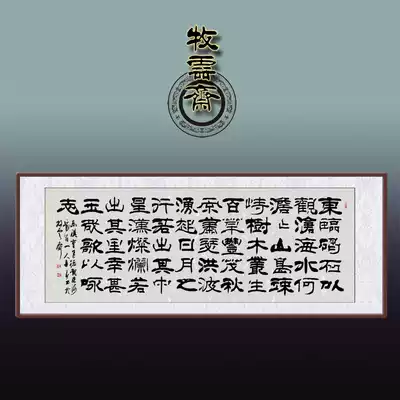 牧雲齋
東臨碣石以
觀滄海水何
澹〻山島竦
峙樹木叢生
百草豐茂秋
風蕭瑟洪波
湧起日月之
行若出其中
星漢燦爛若
出其里幸甚
至哉歌以詠
志